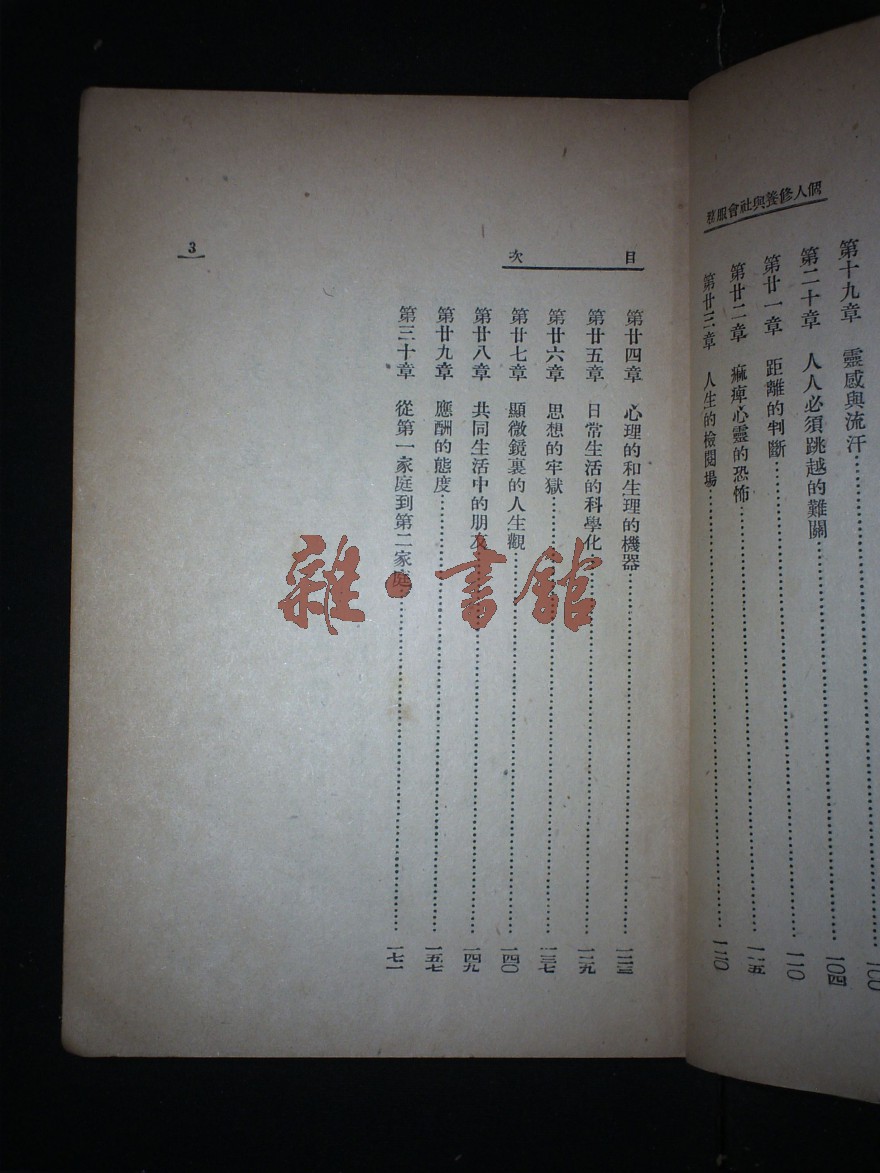 個人修養與社會服務
第十九章 靈感與流汗……一〇〇
第二十章 人人必須跳越的難關……一〇四
第廿一章 距離的判斷……一一〇
第廿二章 痲痺心靈的恐怖……一一五
第廿三章 人生的檢閱場……一二〇
目次
第廿四章 心理的和生理的機器……一二三
第廿五章 日常生活的科學化……一二九
第廿六章 思想的牢獄……一三七
第廿七章 顯微鏡裏的人生觀……一四〇
第廿八章 共同生活中的朋友……一四九
第廿九章 應酬的態度……一五七
第三十章 從第一家庭到第二家庭……一七一
3
雜·書館